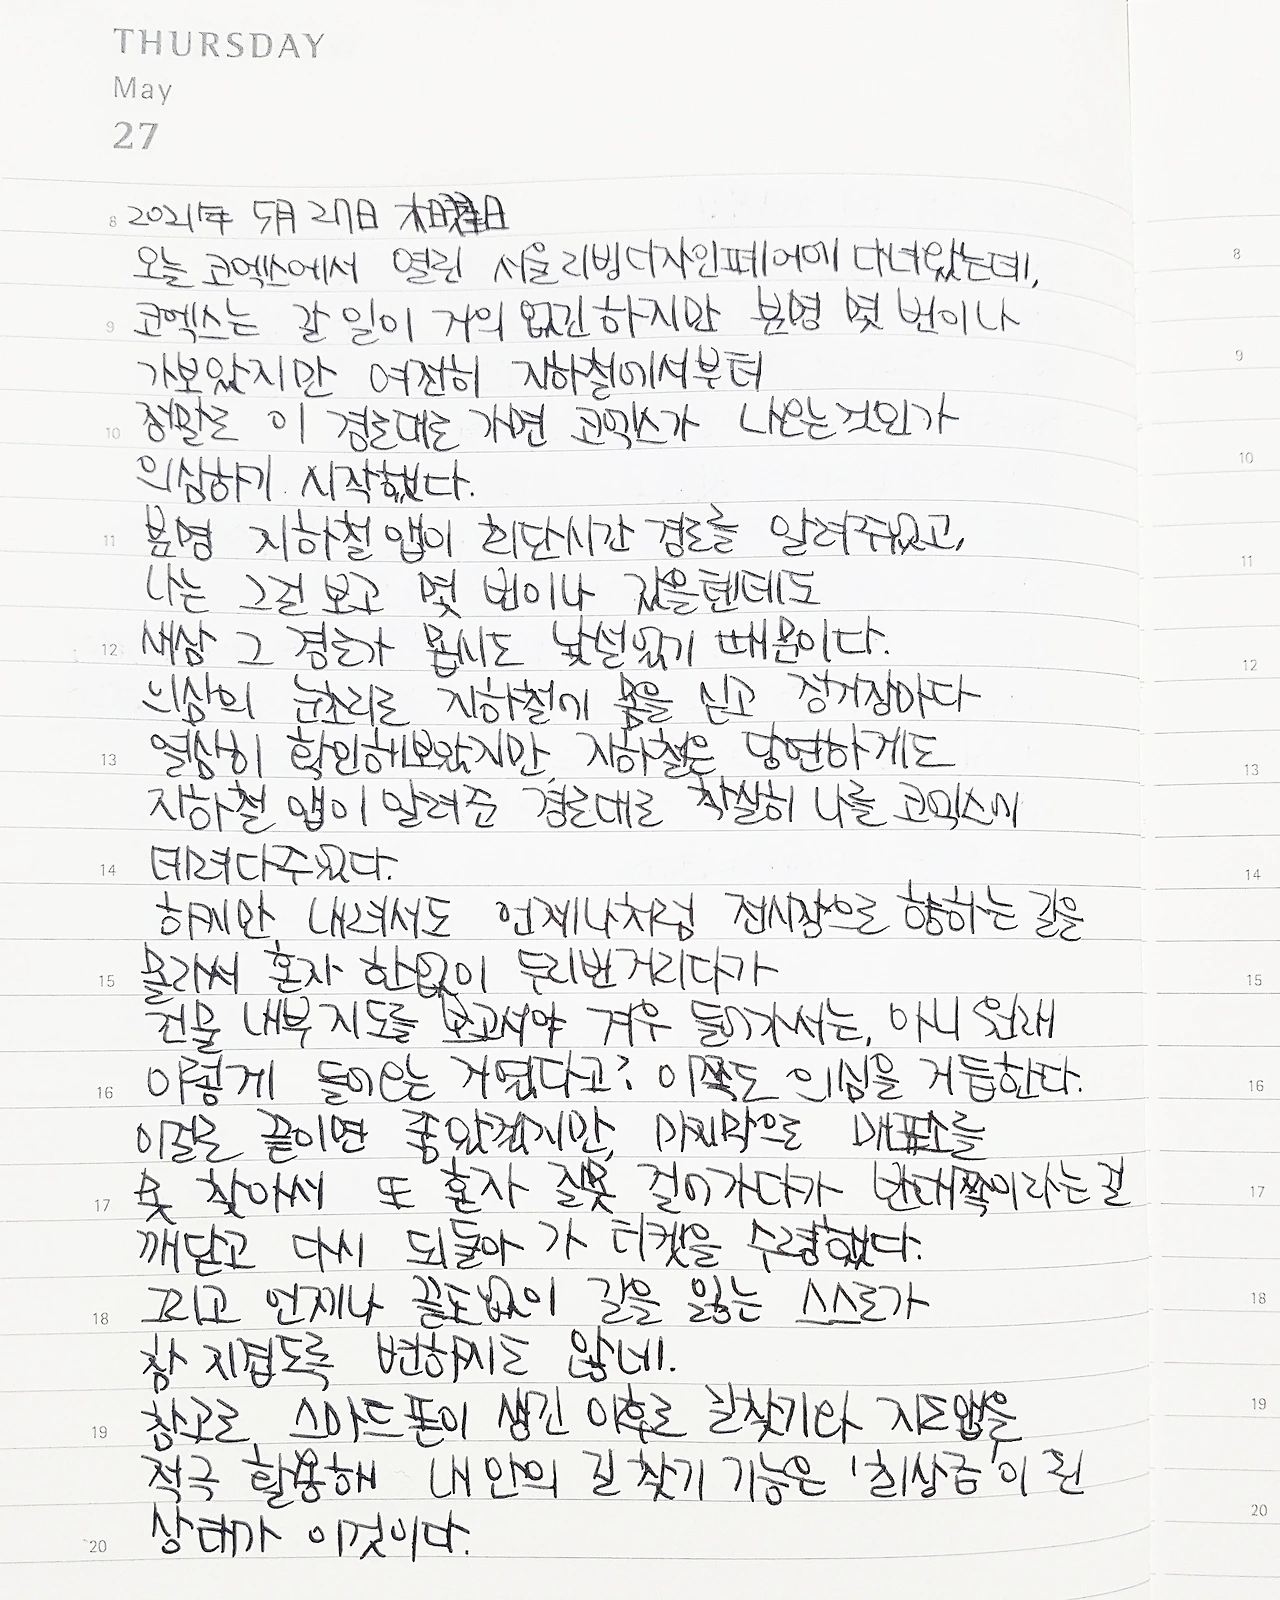 THURSDAY
May
27
8 2021年 5月 27日 木曜日
오늘 코엑스에서 열린 서울리빙디자인페어에 다녀왔는데, 8
9 코엑스는 갈 일이 거의 없긴 하지만 분명 몇 번이나
가보았지만 여전히 지하철에서부터 9
10 정말로 이 경로대로 가면 코엑스가 나오는것인가
의심하기 시작했다. 10
11 분명 지하철 앱이 최단시간 경로를 알려주었고,
나는 그걸 보고 몇 번이나 갔을텐데도 11
12 새삼 그 경로가 몹시도 낯설었기 때문이다.
의심의 눈초리로 지하철에 몸을 싣고 정거장마다 12
13 열심히 확인해보았지만, 지하철은 당연하게도
지하철 앱이 알려준 경로대로 착실히 나를 코엑스에 13
14 데려다주었다.
하지만 내려서도 언제나처럼 전시장으로 향하는 길을 14
15 몰라서 혼자 한없이 두리번거리다가
건물 내부 지도를 보고서야 겨우 들어가서는, 아니 원래 15
16 이렇게 들어오는 거였다고? 이쪽도 의심을 거듭한다.
이걸로 끝이면 좋았겠지만, 마지막으로 매표소를 16
17 못 찾아서 또 혼자 잘못 걸어가다가 반대쪽이라는걸
깨닫고 다시 되돌아 가 티켓을 수령했다. 17
18 그리고 언제나 끝도없이 길을 잃는 스스로가
참 지겹도록 변하지도 않네. 18
19 참고로 스마트폰이 생긴 이후로 길찾기와 지도앱을
적극 활용해 내 안의 길 찾기 기능은 '최상급'이 된 19
20 상태가 이것이다. 20